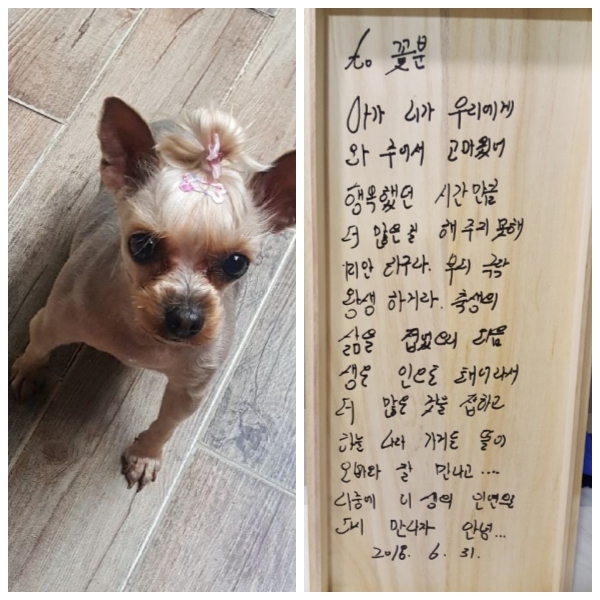 to 꽃분
아가 니가 우리에게
와 주어서 고마웠어
행복했던 시간 만큼
더 많은걸 해 주지 못해
미안 하구나. 부디 극락
왕생 하거라. 축생의
삶을 접었으니 다음
생은 인으로 태어나서
더 많은 것을 접하고
하늘 나라 가거든 똘이
오빠랑 잘 만나고....
나중에 이 생의 인연으로
다시 만나자 안녕...
2018. 6. 31.